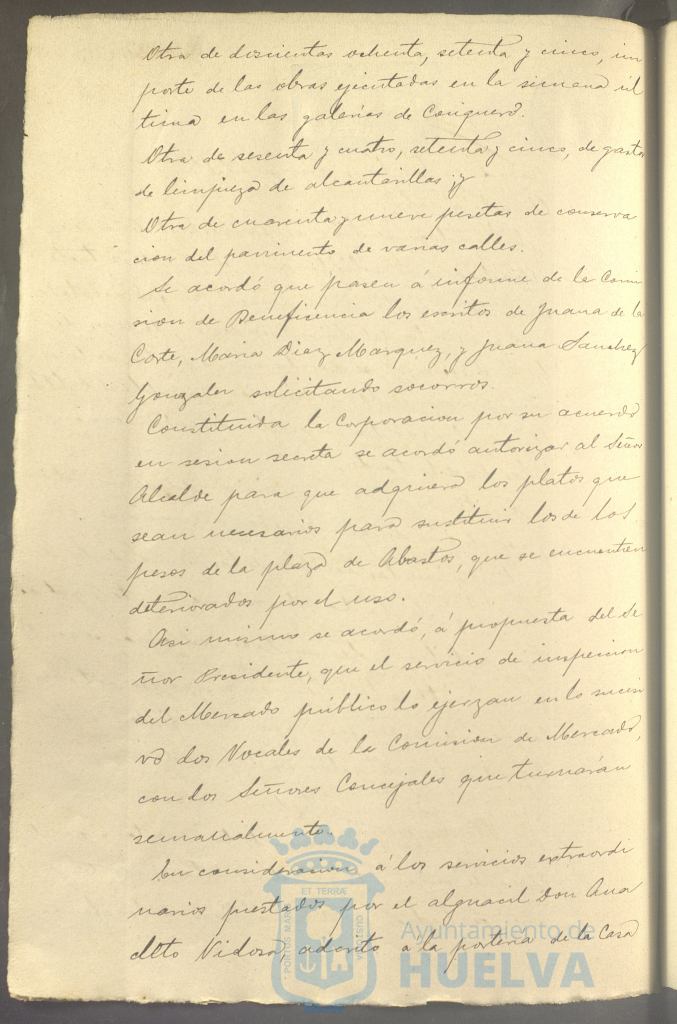 Otra de dscientas ochenta, setenta y cinco, im
porte de las obras ejecutadas en la semana úl
tima en las galerias de Conquero.
Otra de sesenta y cuatro, setenta y cinco, de gastos
de limpieza de alcantarillas; y
Otra de cuarenta y nueve pesetas de conserva
cion del pavimento de varias calles.
Se acordó que pasen á informe de la Comi
sion de Beneficencia los escritos de Juana de la
Corte, Maria Diaz Marquez, y Juana Sanchez
Gonzalez solicitando socorros.
Constituida la Corporacion por su acuerdo
en sesion secreta se acordó autorizar al Señor
Alcalde para que adquiera los platos que
sean necesarios para sustituir los de los
pesos de la plaza de Abastos, que se encuentren
deteriorados por el uso.
Asi mismo se acordó, á propuesta del Se
ñor Presidente, que el servicio de inspeccion
del Mercado público lo ejerzan en lo sucesi
vo dos Vocales de la Comision de Mercado,
con dos Señores Concejales que turnarán
semanalmente.
En consideracion á los servicios extraordi
narios prestados por el alguacil Don Ana
cleto Vidosa, adcrito a la porteria de la Casa
ET TERRÆ
PORTUS MARIS
CUSTODIA
Ayuntamiento de
HUELVA